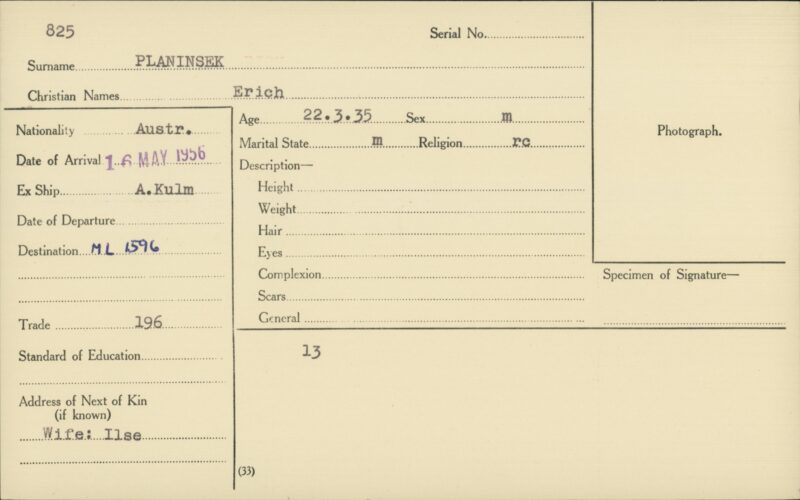 825
Serial No.
Surname PLANINSEK
Christian Names Erich
Nationality Austr.
Date of Arrival 16 MAY 1956
Ex Ship A.Kulm
Date of Departure
Destination ML 1596
Trade 196
Standard of Education
Address of Next of Kin
(if known)
Wife: Ilse
Age 22.3.35 Sex m
Marital State m Religion rc
Description—
Height
Weight
Hair
Eyes
Complexion
Scars
General
13
(33)
Photograph.
Specimen of Signature—